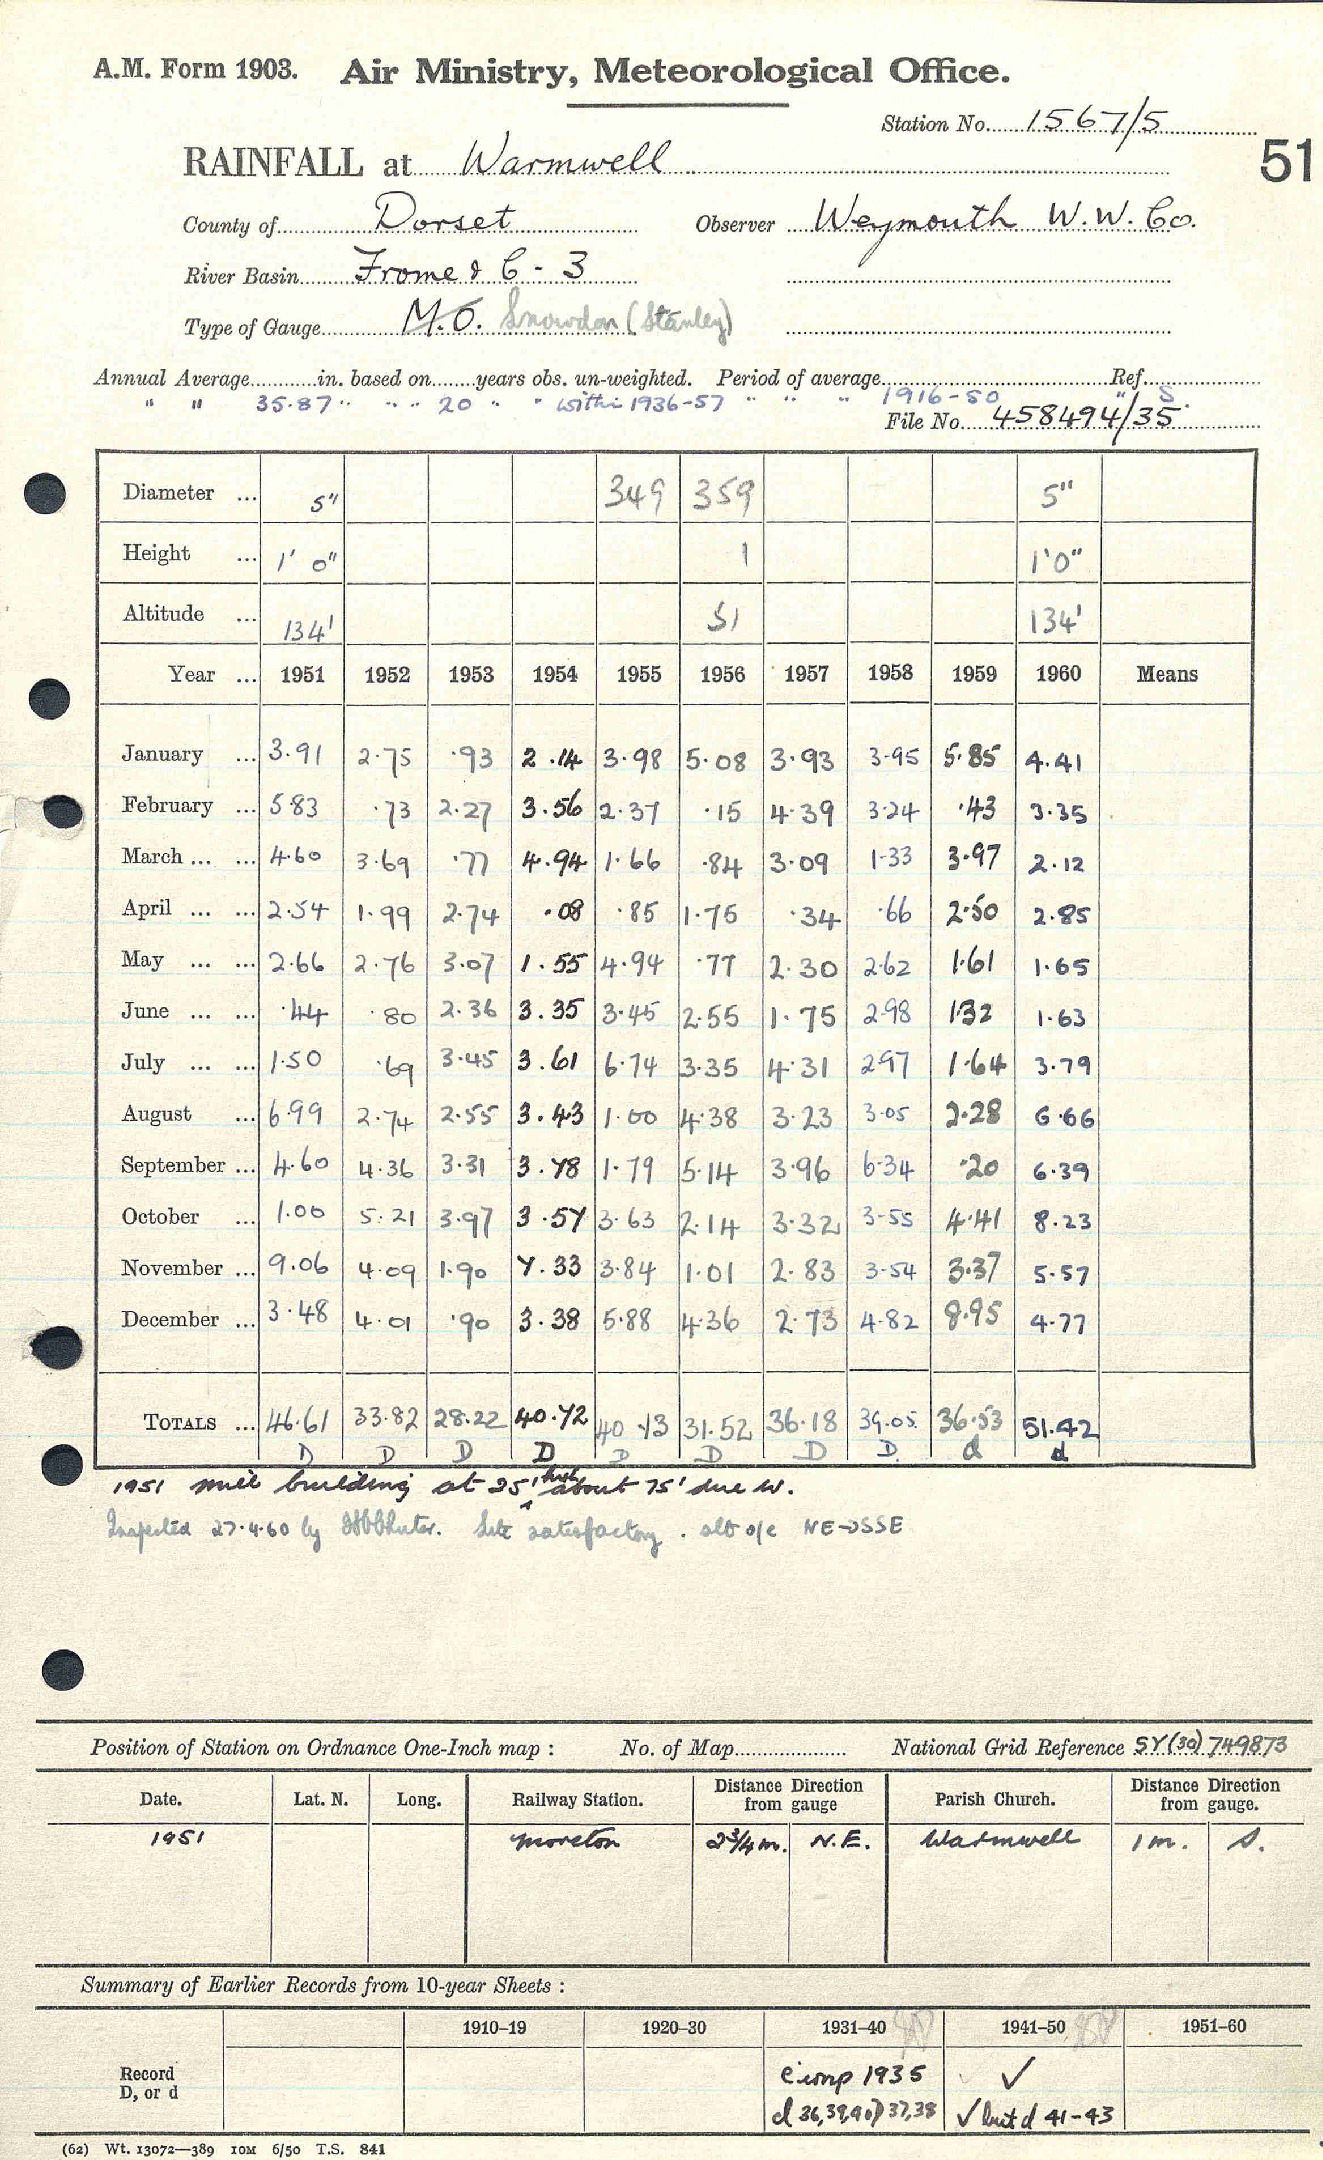 A.M. Form 1903. Air Ministry, Meteorological Office.
Station No. 1567/5
51
RAINFALL at Warmwell
County of Dorset Observer Weymouth W.W. Co.
River Basin Frome & C - 3
Type of Gauge M.O. Snowdon (Stanley)
Annual Average in. based on years obs. un-weighted. Period of average Ref.
" " 35.87 " " " 20 " " within 1936-57 " " " 1916-50 " S.
File No. 458494/35
Diameter ... 5" 349 359 5"
Height ... 1' 0" 1 1'0"
Altitude ... 134' 51 134'
Year ... 1951 1952 1953 1954 1955 1956 1957 1958 1959 1960 Means
January ... 3.91 2.75 .93 2.14 3.98 5.08 3.93 3.95 5.85 4.41
February ... 5.83 .73 2.27 3.56 2.37 .15 4.39 3.24 .43 3.35
March ... ... 4.60 3.69 .77 4.94 1.66 .84 3.09 1.33 3.97 2.12
April ... ... 2.54 1.99 2.74 .08 .85 1.75 .34 .66 2.50 2.85
May ... ... 2.66 2.76 3.07 1.55 4.94 .77 2.30 2.62 1.61 1.65
June ... ... .44 .80 2.36 3.35 3.45 2.55 1.75 2.98 1.32 1.63
July ... ... 1.50 .69 3.45 3.61 6.74 3.35 4.31 2.97 1.64 3.79
August ... 6.99 2.74 2.55 3.43 1.00 4.38 3.23 3.05 2.28 6.66
September ... 4.60 4.36 3.31 3.78 1.79 5.14 3.96 6.34 .20 6.39
October ... 1.00 5.21 3.97 3.57 3.63 2.14 3.32 3.55 4.41 8.23
November ... 9.06 4.09 1.90 7.33 3.84 1.01 2.83 3.54 3.37 5.57
December ... 3.48 4.01 .90 3.38 5.88 4.36 2.73 4.82 8.95 4.77
TOTALS ... 46.61 33.82 28.22 40.72 40.13 31.52 36.18 39.05 36.53 51.42
D D D D D D D D d d
1951 mill building at 25' high about 75' due W.
Inspected 27.4.60 by Site satisfactory. alt o/c NE→SSE
Position of Station on Ordnance One-Inch map : No. of Map National Grid Reference SY(30)749873
Date. Lat. N. Long. Railway Station. Distance Direction from gauge Parish Church. Distance Direction from gauge.
1951 Moreton 2¾m. N.E. Warmwell 1 m. S.
Summary of Earlier Records from 10-year Sheets :
1910-19 1920-30 1931-40 1941-50 1951-60
Record D, or d
1935 ✓
d 36,39,40 D 37,38 ✓ but d 41-43
(62) Wt. 13072—389 10M 6/50 T.S. 841